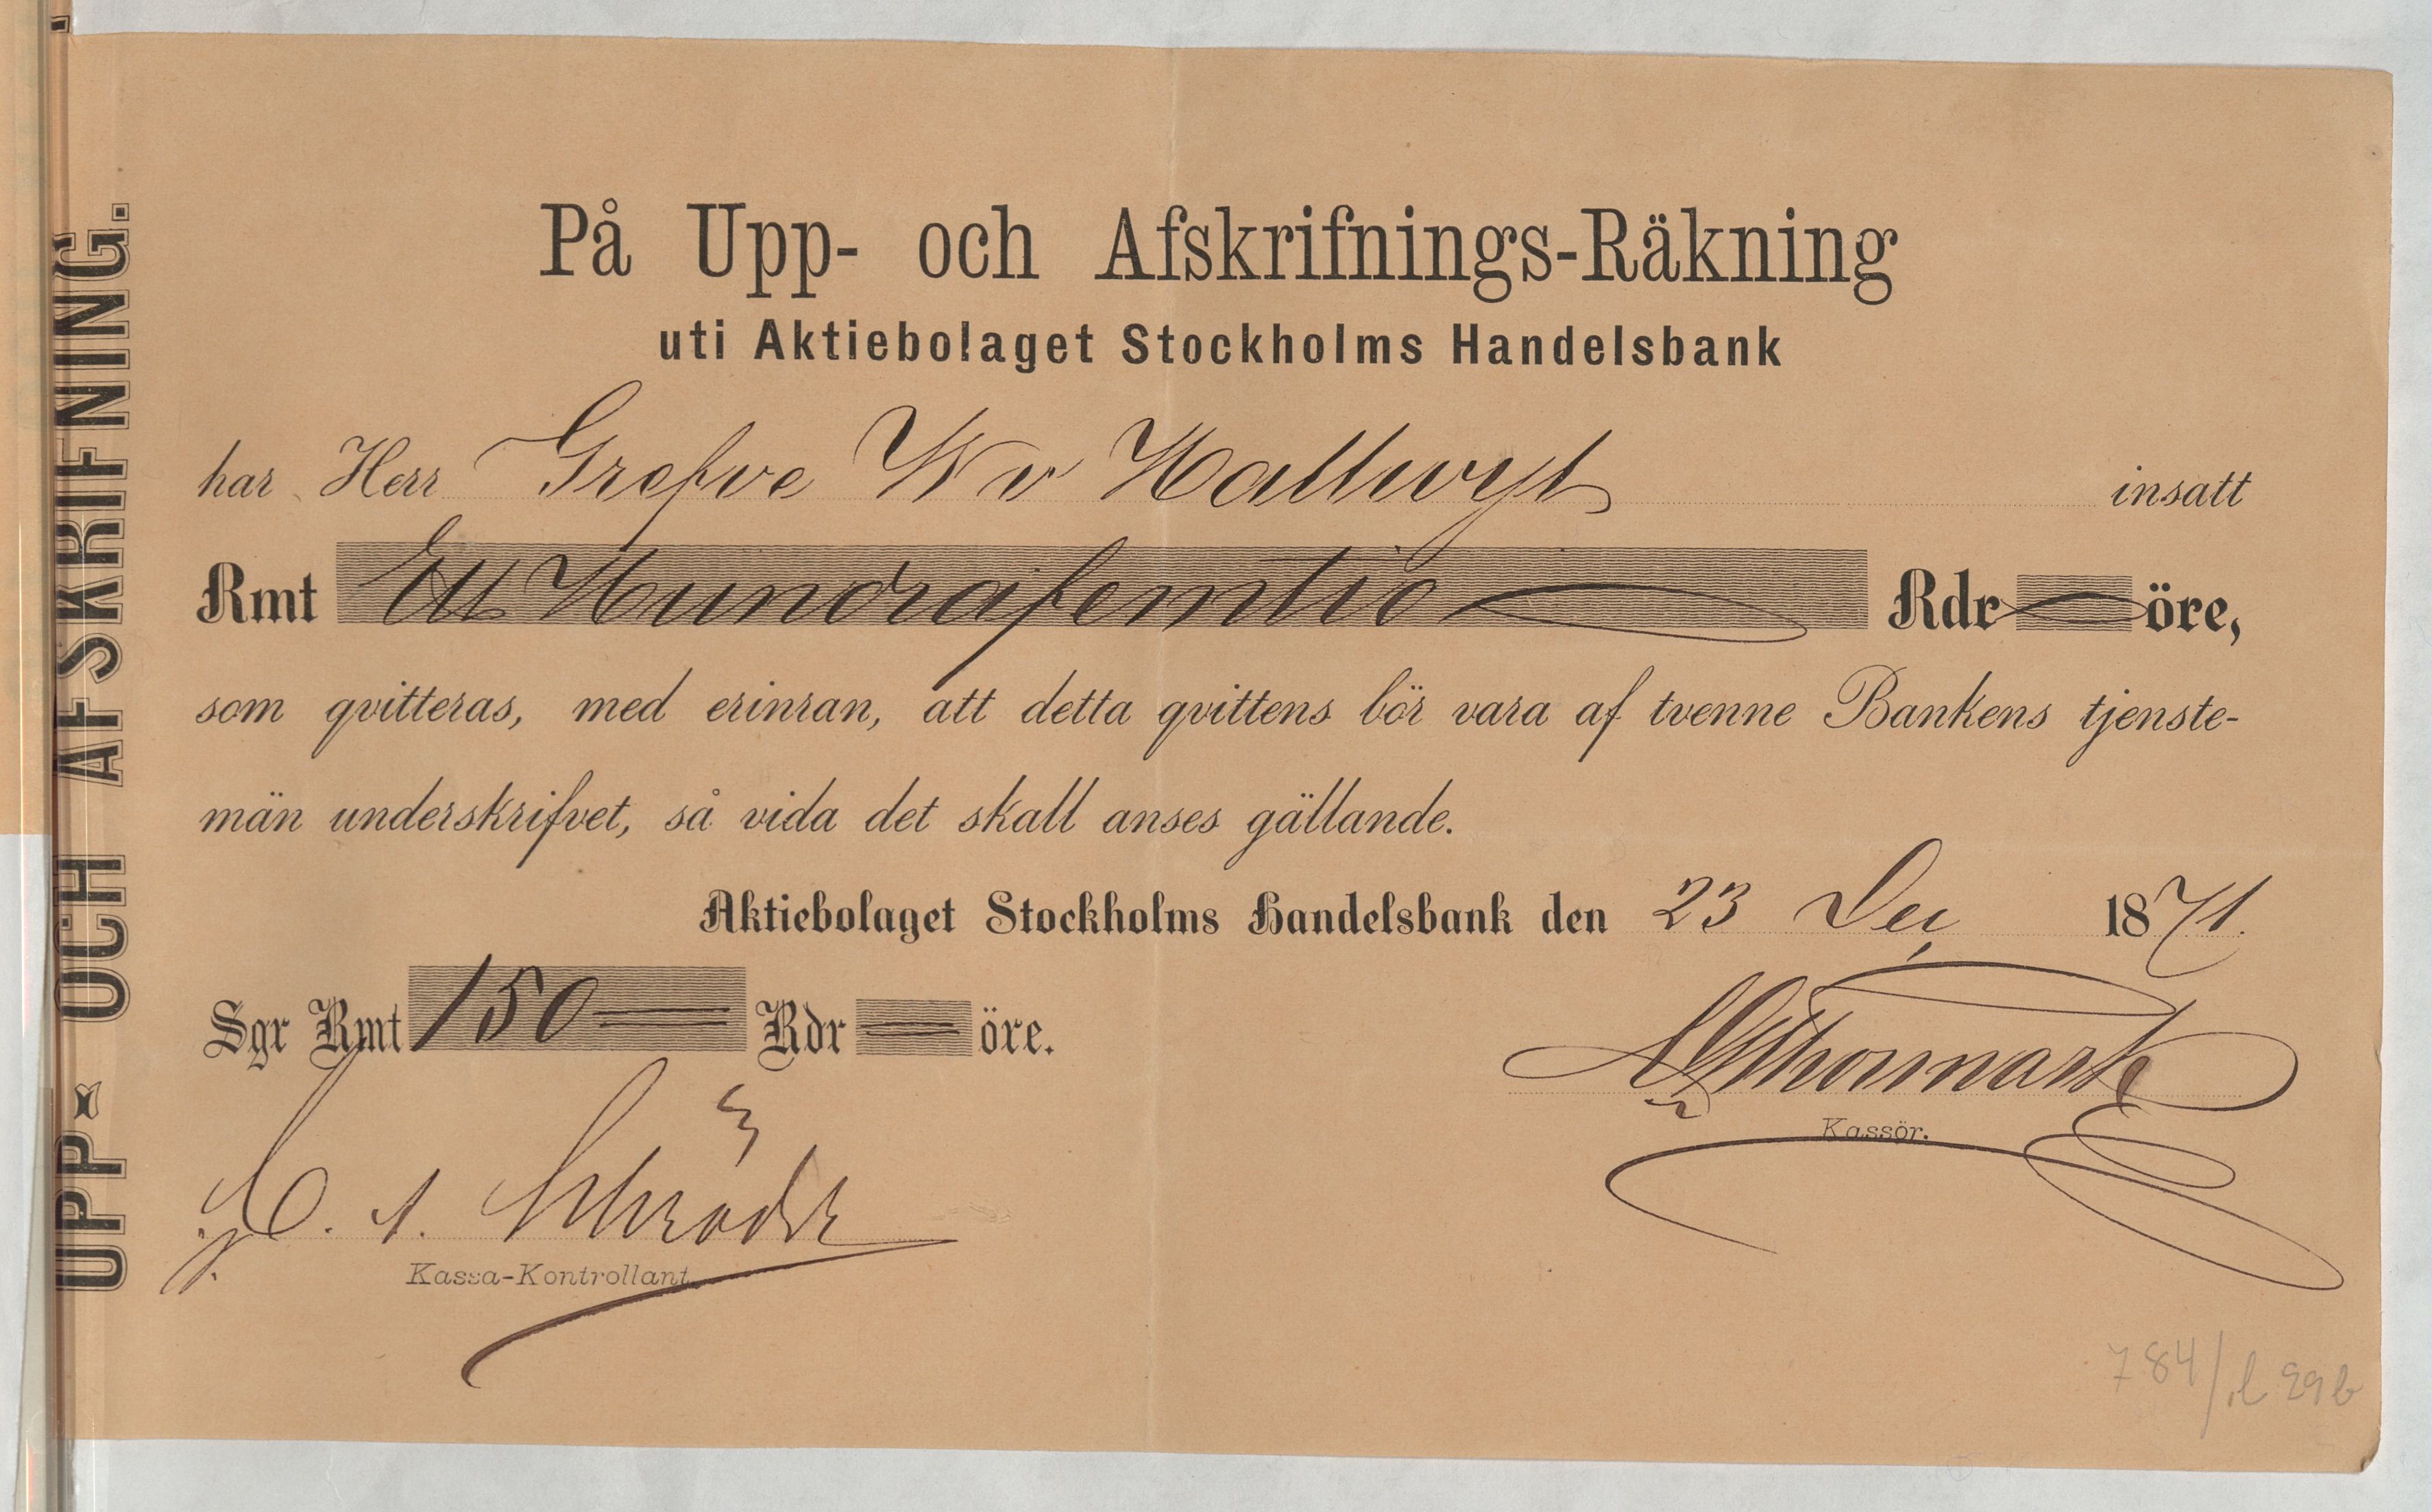 UPP- OCH AFSKRIFNING.
På Upp- och Afskrifnings-Räkning
uti Aktiebolaget Stockholms Handelsbank
har Herr Grefve W v Hallwyl insatt
Rmt Ett Hundrafemtio Rdr öre,
som qvitteras, med erinran, att detta qvittens bör vara af tvenne Bankens tjenste-
män underskrifvet, så vida det skall anses gällande.
Aktiebolaget Stockholms Handelsbank den 23 Dec 1871.
Sgr Rmt 150 Rdr öre.
Kassör.
C. A. Schröder
Kassa-Kontrollant
784/